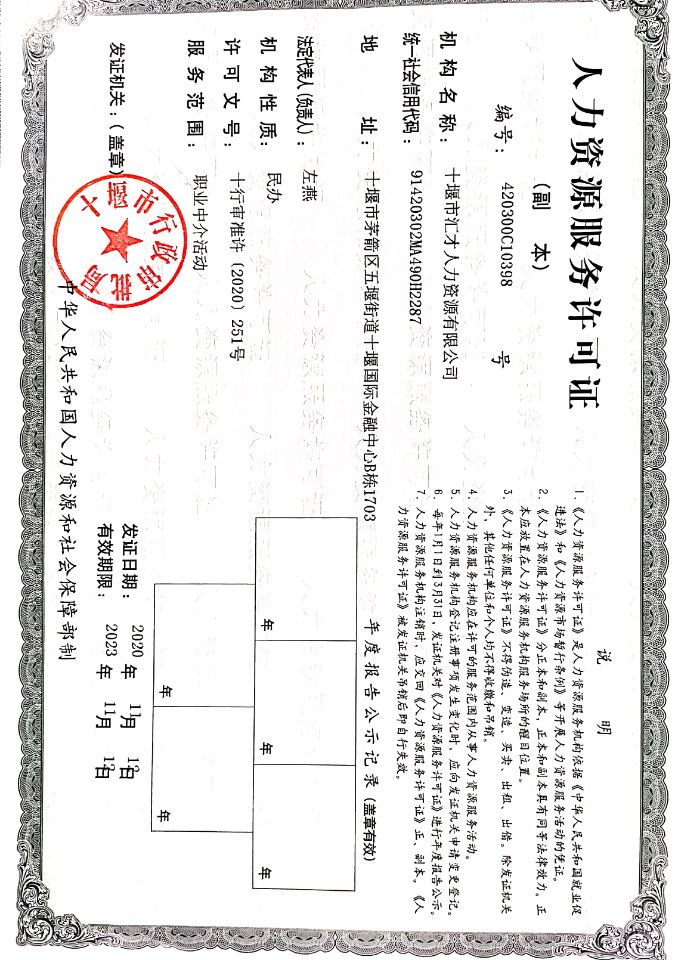 人力资源服务许可证
（副 本）
编号： 420300C10398 号
机构名称： 十堰市汇才人力资源有限公司
统一社会信用代码： 91420302MA490H2287
地 址： 十堰市茅箭区五堰街道十堰国际金融中心B栋1703
法定代表人(负责人)： 左燕
机构性质： 民办
许可文号： 十行审准许〔2020〕251号
服务范围： 职业中介活动
发证机关：（盖章）
十堰市行政审批局
发证日期： 2020 年 11月 12日
有效期限： 2023 年 11月 12日
说 明
1.《人力资源服务许可证》是人力资源服务机构依据《中华人民共和国就业促
进法》和《人力资源市场暂行条例》等开展人力资源服务活动的凭证。
2.《人力资源服务许可证》分正本和副本，正本和副本具有同等法律效力。正
本应放置在人力资源服务机构服务场所的醒目位置。
3.《人力资源服务许可证》不得伪造、变造、买卖、出租、出借。除发证机关
外，其他任何单位和个人均不得收缴和吊销。
4. 人力资源服务机构应在许可的服务范围内从事人力资源服务活动。
5. 人力资源服务机构登记注册事项发生变化时，应向发证机关申请变更登记。
6. 每年1月1日到3月31日，发证机关对《人力资源服务许可证》进行年度报告公示。
7. 人力资源服务机构注销时，应交回《人力资源服务许可证》正、副本。《人
力资源服务许可证》被发证机关吊销后即自行失效。
年度报告公示记录（盖章有效）
年 年 年
年 年
中华人民共和国人力资源和社会保障部制